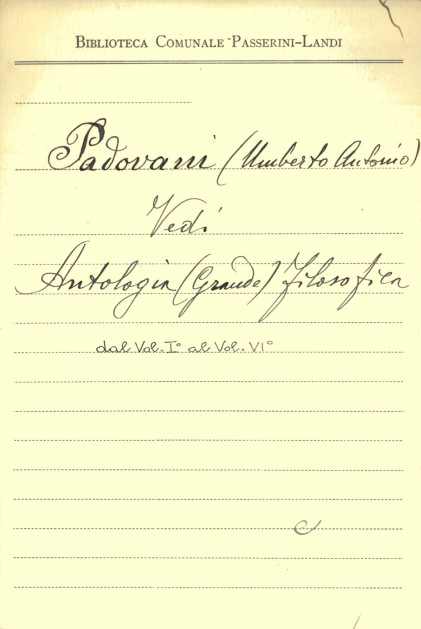 BIBLIOTECA COMUNALE PASSERINI-LANDI
Padovani (Umberto Antonio)
Vedi
Antologia (Grande) filosofica
dal Vol. I° al Vol. VI°